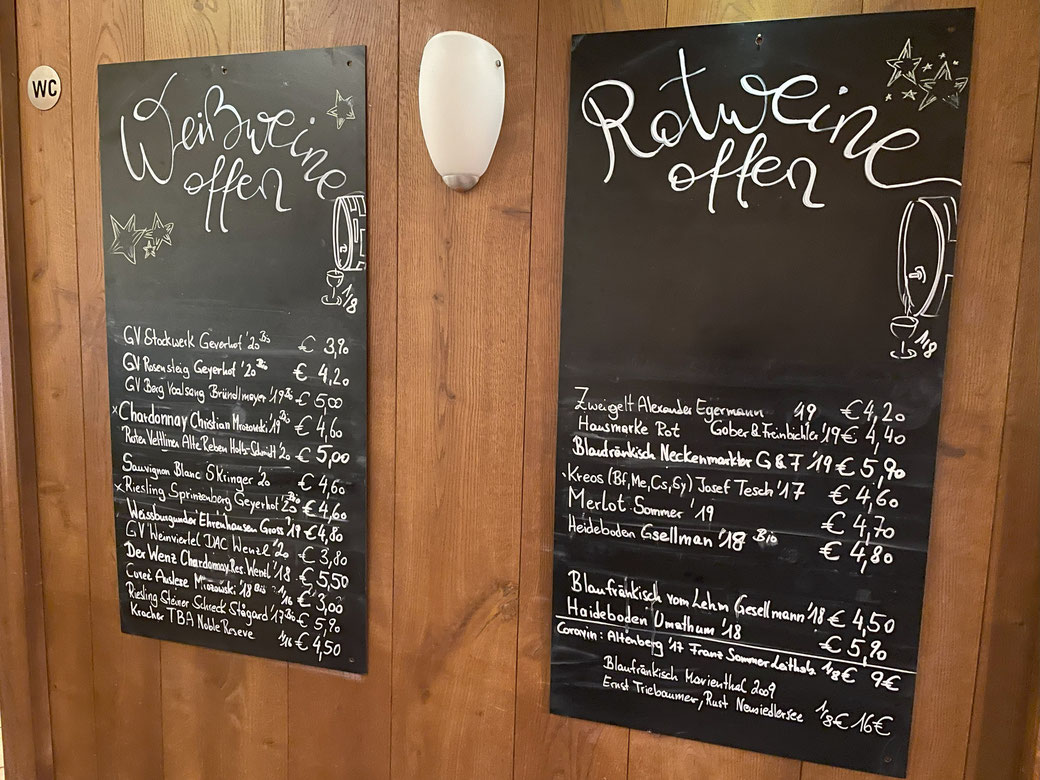 WC
Weißweine
offen
1/8
GV Stockwerk Geyerhof '20 Bio € 3,90
GV Rosensteig Geyerhof '20 Bio € 4,20
GV Berg Voalsang Bründlmayer '19 Bio € 5,00
x Chardonnay Christian Mrozowski '19 Bio € 4,60
Roter Veltliner Alte Reben Holts-Schmidt '20 € 5,00
Sauvignon Blanc Skringer '20 € 4,60
x Riesling Sprinzenberg Geyerhof '20 Bio € 4,60
Weissburgunder Ehrenhausen Gross '19 € 4,80
GV Weinviertel DAC Wenzl '20 € 3,80
Der Wenz Chardonnay Res. Wenzl '18 € 5,50
Auslese Mrozowski '18 Bio 1/16 € 3,00
Riesling Steiner Schreck Stagard '17 Bio € 5,90
Kracher TBA Noble Reseve 1/16 € 4,50
Rotweine
offen
1/8
Zweigelt Alexander Egermann 19 € 4,20
Hausmarke Rot Gober & Freinbichler '19 € 4,40
Blaufränkisch Neckenmarkter G & F '19 € 5,90
Kreos (Bf, Me, Cs, Sy) Josef Tesch '17 € 4,60
Merlot Sommer '19 € 4,70
Heideboden Gsellman '18 Bio € 4,80
Blaufränkisch vom Lehm Gesellmann '18 € 4,50
Haideboden Umathum '18 € 5,90
Coravin: Altenberg '17 Franz Sommer Leithab. 1/8 € 9 €
Blaufränkisch Marienthal 2009
Ernst Triebaumer, Rust Neusiedlersee 1/8 € 16 €